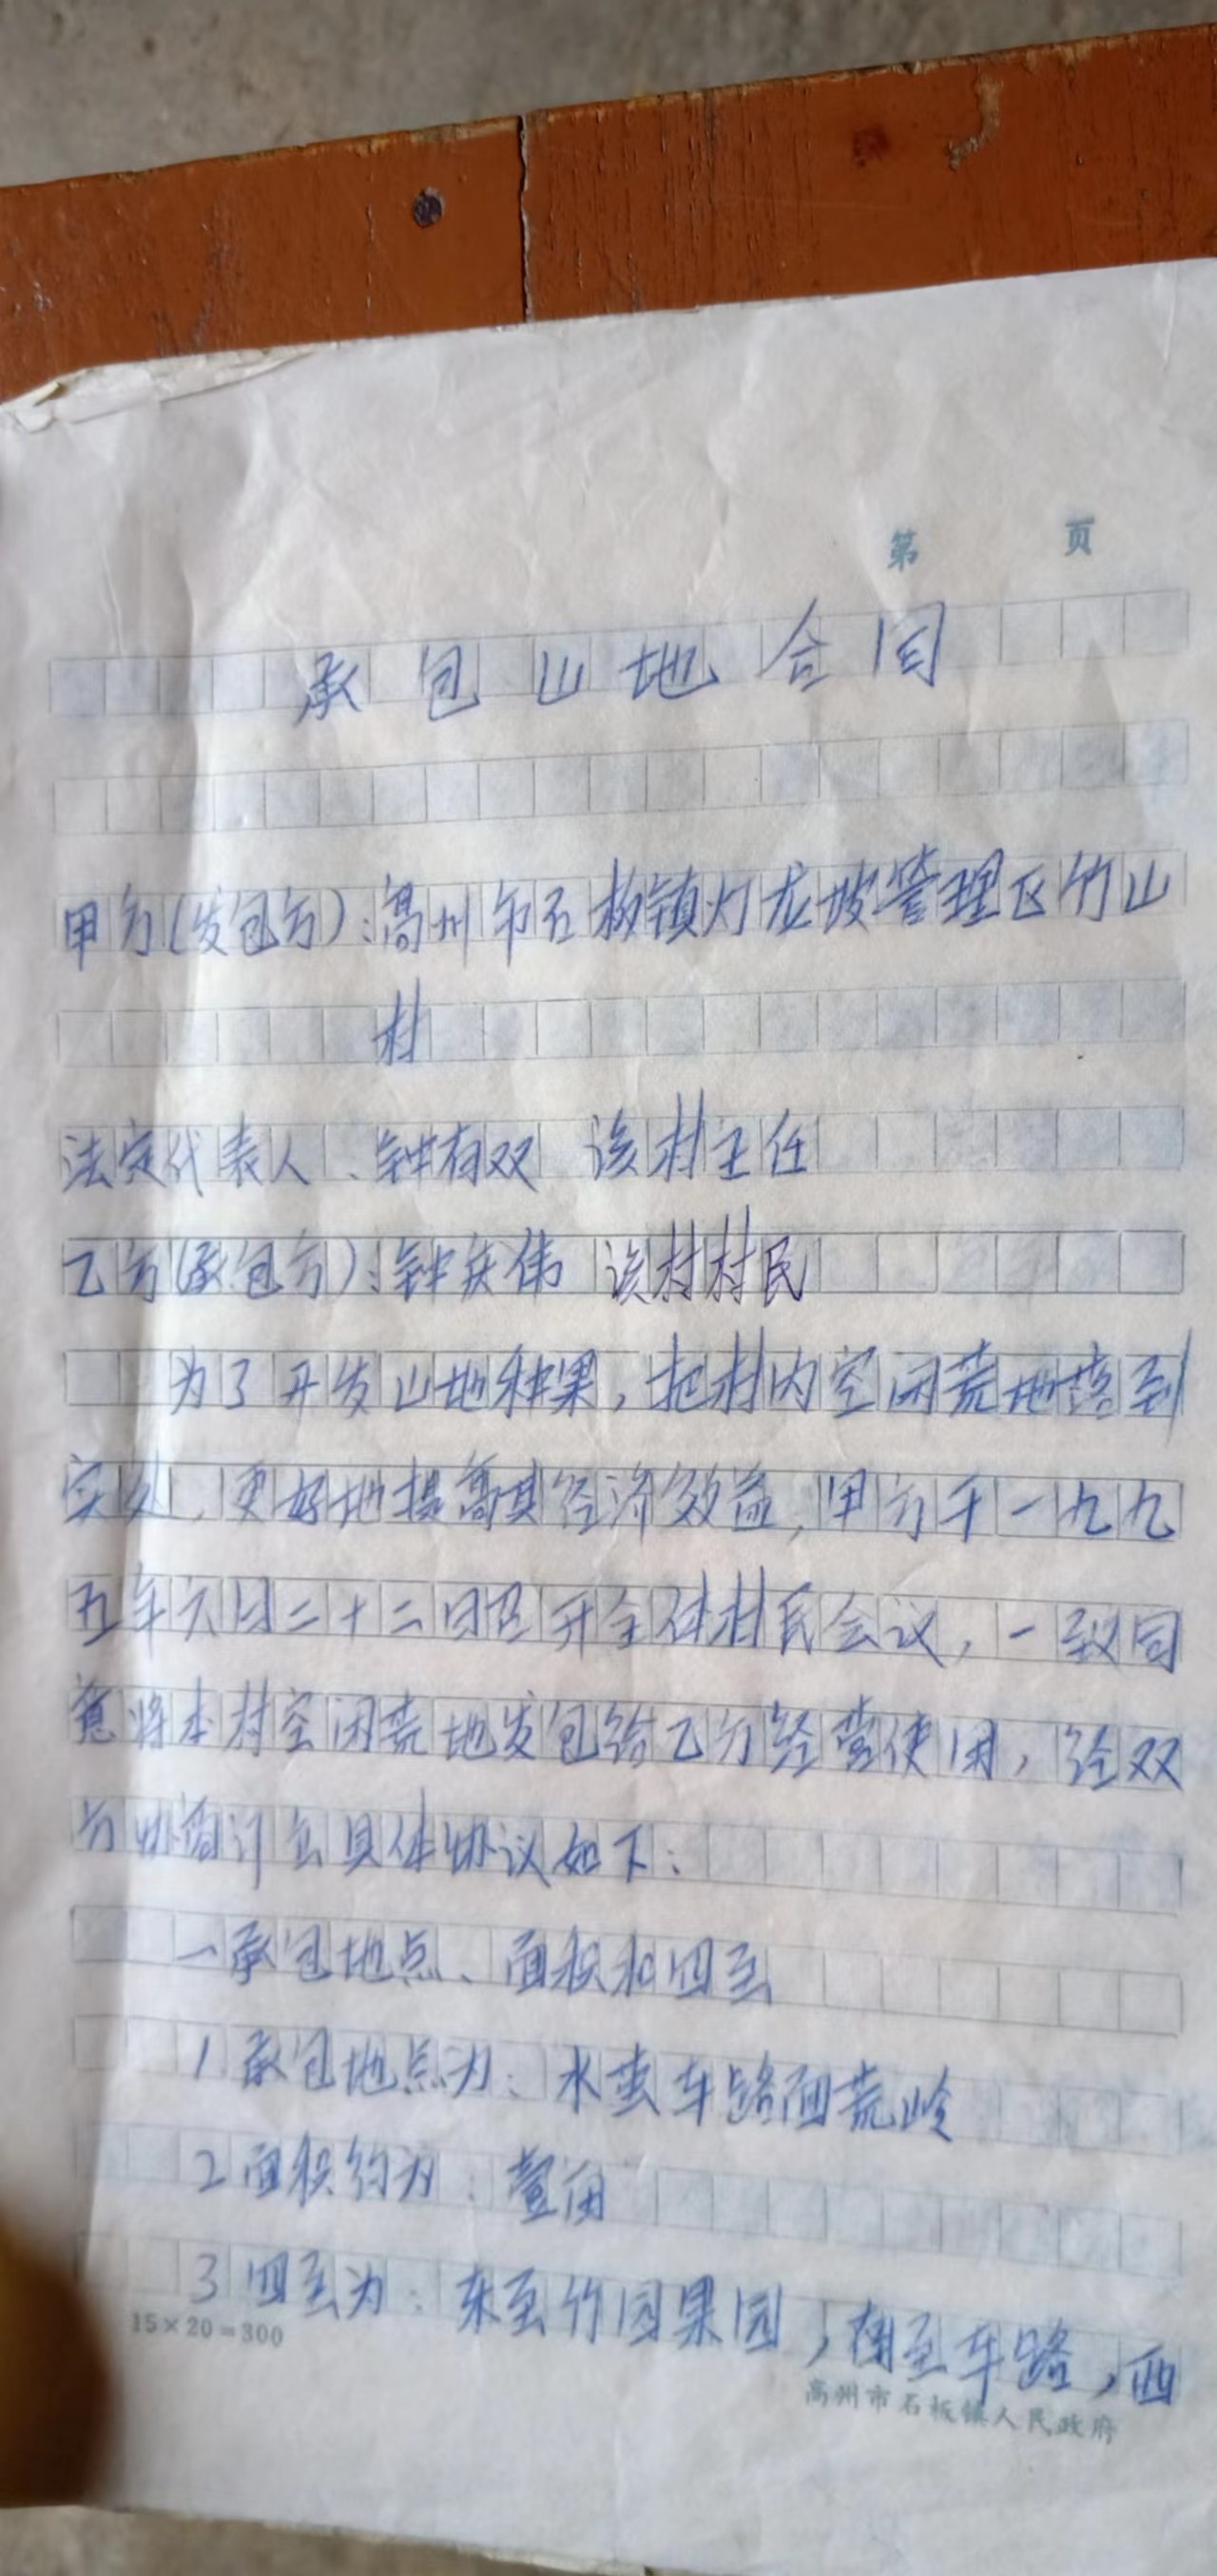 第 页
承包山地合同
甲方(发包方):高州市石板镇灯龙坡管理区竹山
村
法定代表人、钟有双 该村主任
乙方(承包方):钟庆伟 该村村民
为了开发山地种果,把村内空闲荒地落到
实处,更好地提高其经济效益,甲方于一九九
五年六月二十二日召开全体村民会议,一致同
意将本村空闲荒地发包给乙方经营使用,经双
方协商订立具体协议如下:
一承包地点、面积和四至
1承包地点为:水 车路面荒岭
2面积约为:壹亩
3四至为:东至竹园果园,南至车路,西
15×20=300
高州市石板镇人民政府